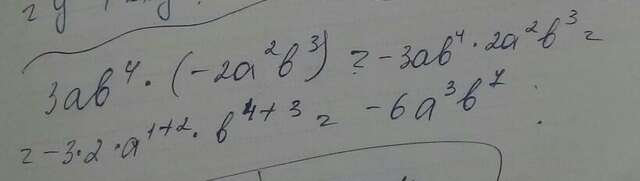 3ab⁴ · (-2a²b³) = -3ab⁴ · 2a²b³ =
= -3·2·a¹⁺² · b⁴⁺³ = -6a³b⁷